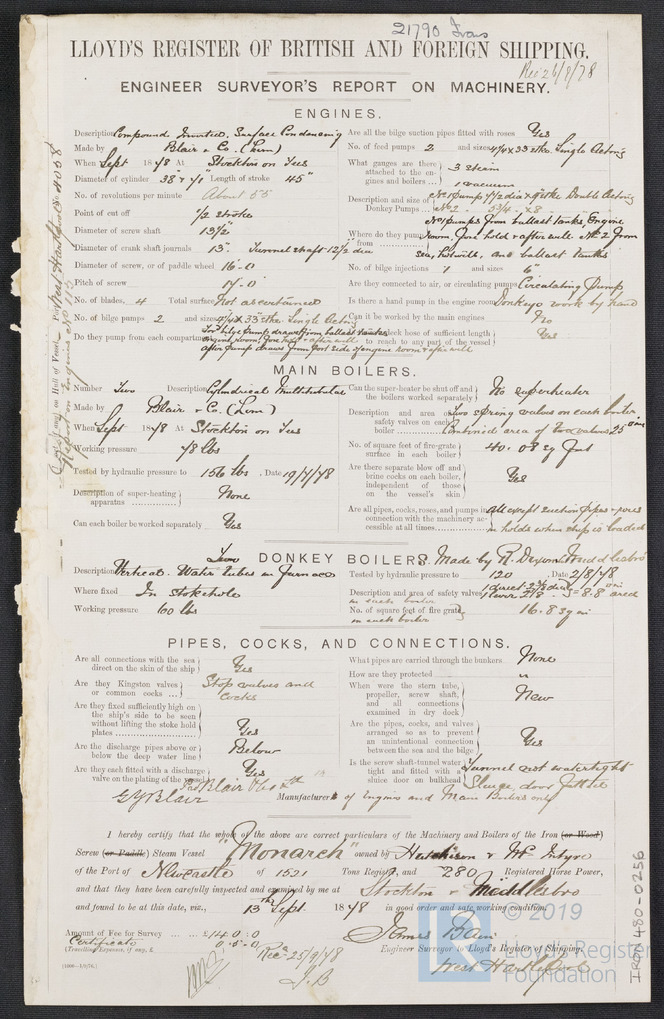 21790 Iron
LLOYD'S REGISTER OF BRITISH AND FOREIGN SHIPPING.
Rec'd 26/9/78
ENGINEER SURVEYOR'S REPORT ON MACHINERY.
ENGINES.
Description Compound Inverted, Surface Condensing
Made by Blair & Co. (Lim)
When Sept 1878 At Stockton on Tees
Diameter of cylinder 38" & 71" Length of stroke 45"
No. of revolutions per minute About 55
Point of cut off 1/2 stroke
Diameter of screw shaft 13 1/2
Diameter of crank shaft journals 13". Tunnel shaft 12 1/2 dia
Diameter of screw, or of paddle wheel 16-0
Pitch of screw 17-0
No. of blades, 4 Total surface Not ascertained
No. of bilge pumps 2 and sizes 4 1/4 x 33" stke. Single Acting
Do they pump from each compartment
For'd bilge pump draws from ballast tanks
engine room, fore hold & after well
After pump draws from port side of engine room & after well
Are all the bilge suction pipes fitted with roses Yes
No. of feed pumps 2 and sizes 4 1/4 x 33 stke. Single Acting
What gauges are there attached to the engines and boilers ... 3 steam
1 vacuum
Description and size of Donkey Pumps ... No 1 pump 7 1/2 dia x 9 stke Double Acting
No 2 - 5 3/4 x 8
Where do they pump from
No 1 pumps from ballast tanks, Engine
room, fore hold & after well. No 2 from
sea, hotwell, and ballast tanks
No. of bilge injections 1 and sizes 6"
Are they connected to air, or circulating pumps Circulating Pump
Is there a hand pump in the engine room Donkeys work by hand
Can it be worked by the main engines No
hose of sufficient length to reach to any part of the vessel Yes
MAIN BOILERS.
Number Two Description Cylindrical Multitubular
Made by Blair & Co. (Lim)
When Sept 1878 At Stockton on Tees
Working pressure 78 lbs
Tested by hydraulic pressure to 156 lbs. Date 19/7/78
Description of super-heating apparatus None
Can each boiler be worked separately Yes
Can the super-heater be shut off and the boilers worked separately No superheater
Description and area of safety valves on each boiler Two spring valves on each boiler.
Combined area of two valves 25
No. of square feet of fire-grate surface in each boiler 40.08 sq feet
Are there separate blow off and brine cocks on each boiler, independent of those on the vessel's skin Yes
Are all pipes, cocks, roses, and pumps in connection with the machinery accessible at all times All except suction pipes & roses
in holds when ship is loaded
DONKEY BOILERS. Made by R. Dixon Middlesbro
Description Two Vertical. Water tubes in furnace
Where fixed In stokehole
Working pressure 60 lbs
Tested by hydraulic pressure to 120. Date 2/8/78
Description and area of safety valves
in each boiler
No. of square feet of fire grate
in each boiler 16.8
PIPES, COCKS, AND CONNECTIONS.
Are all connections with the sea direct on the skin of the ship Yes
Are they Kingston valves or common cocks ... Stop valves and
cocks
Are they fixed sufficiently high on the ship's side to be seen without lifting the stoke hold plates Yes
Are the discharge pipes above or below the deep water line Below
Are they each fitted with a discharge valve on the plating of the vessel Yes
What pipes are carried through the bunkers None
How are they protected "
When were the stern tube, propeller, screw shaft, and all connections examined in dry dock New
Are the pipes, cocks, and valves arranged so as to prevent an unintentional connection between the sea and the bilge Yes
Is the screw shaft-tunnel water tight and fitted with a sluice door on bulkhead Tunnel not watertight
Sluice door fitted
Blair & Co Ld
G Y Blair Manufacturers of Engines and Main Boilers only
I hereby certify that the whole of the above are correct particulars of the Machinery and Boilers of the Iron (or Wood)
Screw (or Paddle) Steam Vessel "Monarch" owned by Hutchison & McIntyre
of the Port of Newcastle of 1521 Tons Register, and 280 Registered Horse Power,
and that they have been carefully inspected and examined by me at Stockton & Middlesbro
and found to be at this date, viz., 13th Sept. 1878 in good order and safe working condition.
Amount of Fee for Survey £14.0.0
Certificate 0.5.0
(Travelling Expenses, if any, £
Rec'd 25/9/78
J.B
James Bain
Engineer Surveyor to Lloyd's Register of Shipping,
West Hartlepool
© 2019
Lloyd's Register
Foundation
IRON480-0256